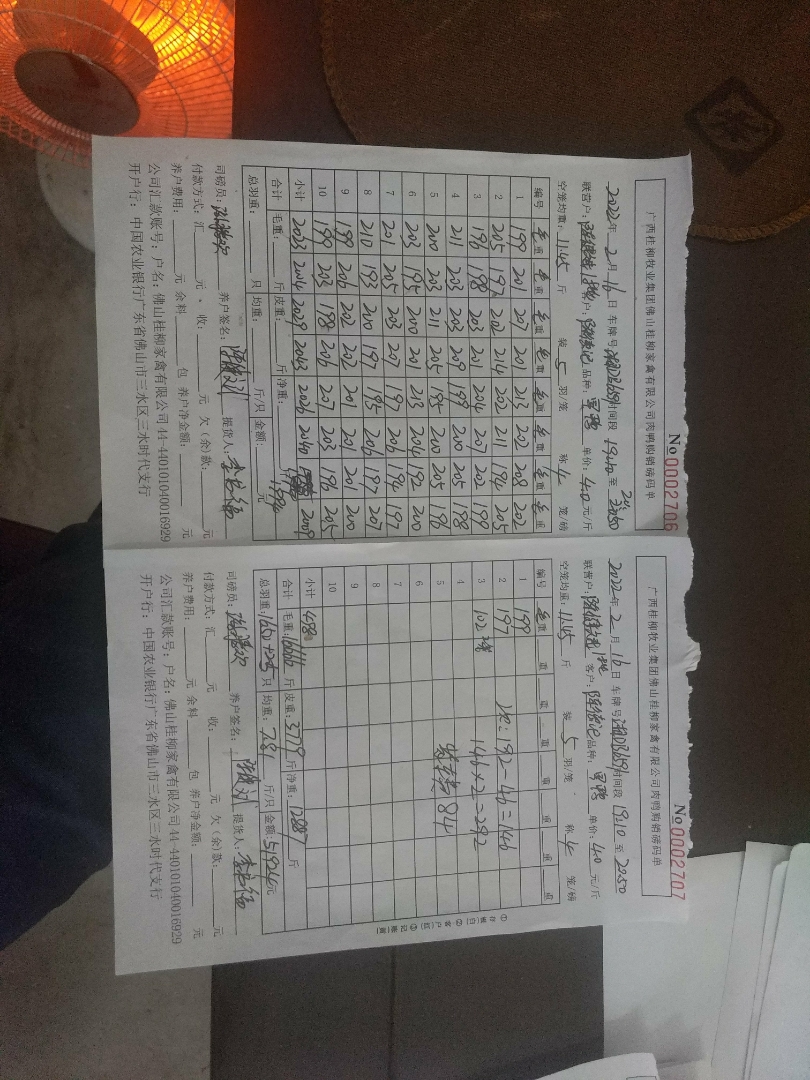 广西桂柳牧业集团佛山桂柳家禽有限公司肉鸭购销磅码单
No 0002706
2022年 2月 16日 车牌号 时间段 19:10 至 20:50
联营户: 客户: 品种: 单价: 4.0 元/斤
空笼均重: 11.45 斤 装 5 羽/笼 称 4 笼/磅
编号 毛重 毛重 毛重 毛重 毛重 毛重 毛重 毛重
1 199 201 207 201 213 202 208 202
2 205 197 202 214 202 211 194 205
3 196 198 203 201 204 207 202 199
4 211 203 203 209 199 200 205 198
5 200 203 211 205 195 200 205 196
6 203 195 200 201 213 204 192 200
7 201 205 203 207 197 206 194 197
8 210 193 200 197 195 206 197 207
9 199 206 202 202 201 201 201 200
10 199 203 198 206 207 203 196 205
小计 2023 2004 2029 2043 2026 2040 2009
合计 毛重: 斤 皮重: 斤 净重: 斤
总羽重: 只 均重: 斤/只 金额: 元
司磅员: 养户签名: 提货人:
付款方式: 汇 元 收: 元 欠(余)款: 元
养户费用: 元 余料 包 养户净金额: 元
公司汇款账号: 户名: 佛山桂柳家禽有限公司 44-440101040016929
开户行: 中国农业银行广东省佛山市三水区三水时代支行
广西桂柳牧业集团佛山桂柳家禽有限公司肉鸭购销磅码单
No 0002707
2022年 2月 16日 车牌号 时间段 19:10 至 20:50
联营户: 客户: 品种: 单价: 4.0 元/斤
空笼均重: 11.45 斤 装 5 羽/笼 称 4 笼/磅
编号 毛重 重 重 重 重 重 重 重
1 199
2 197
3 102
4
5
6
7
8
9
10
192-46=146
146×2=292
84
小计 498
合计 毛重: 16666 斤 皮重: 3779 斤 净重: 12887 斤
总羽重: 1650 只 均重: 7.81 斤/只 金额: 元
司磅员: 养户签名: 提货人:
付款方式: 汇 元 收: 元 欠(余)款: 元
养户费用: 元 余料 包 养户净金额: 元
公司汇款账号: 户名: 佛山桂柳家禽有限公司 44-440101040016929
开户行: 中国农业银行广东省佛山市三水区三水时代支行
①存根(白) ②客户(红) ③记账(黄)